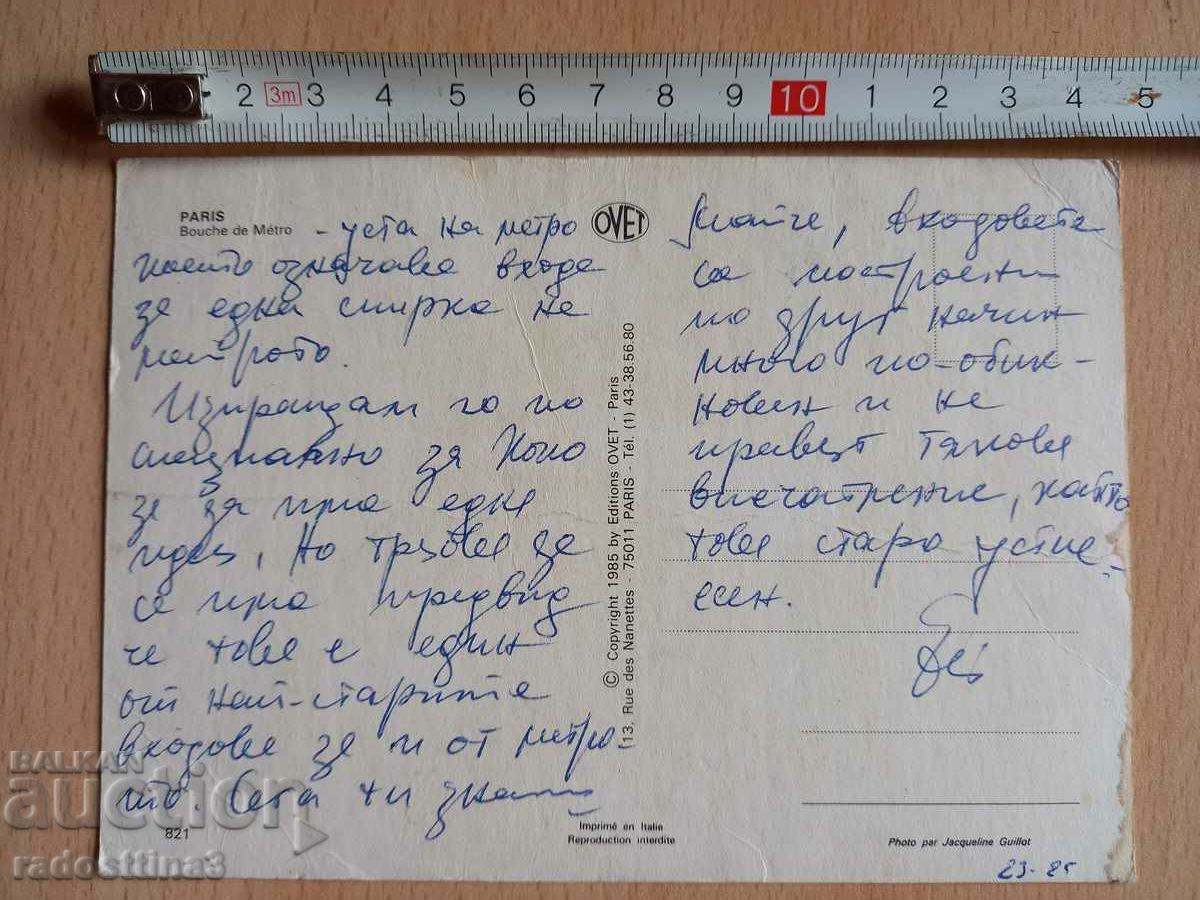 2 3m 3 4 5 6 7 8 9 10 1 2 3 4 5
PARIS
Bouche de Métro
- уста на метро
което означава входа
за една спирка на
метрото.
Изпращам го по
специално за Кольо
за да има една
идея, но трябва да
се има предвид
че това е един
от най-старите
входове за и от метро-
то. Сега ти знаеш
OVET
© Copyright 1985 by Editions OVET - Paris
13, Rue des Nanettes - 75011 PARIS - Tél. (1) 43-38.56.80
входовете
са построени
по друг начин
много по-обик-
новен и не
правят такова
впечатление, както
това старо
821
Imprimé en Italie
Reproduction interdite
Photo par Jacqueline Guillot
23-85
BALKAN
auction
radosttina3